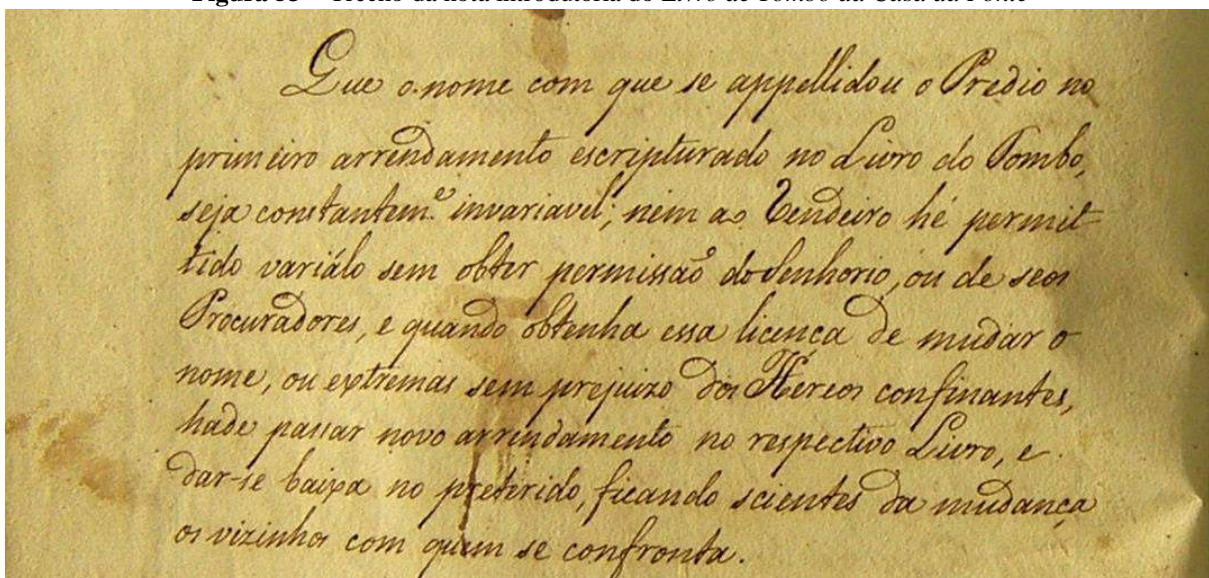 Figura 35 – Trecho da nota introdutória do Livro de Tombo da Casa da Ponte
Que o nome com que se appellidou o Predio no
primeiro arrendamento escripturado no Livro do Tombo,
seja constantem.e invariavel; nem ao Rendeiro hé permit-
tido variálo sem obter permissaõ do Senhorio, ou de seos
Procuradores, e quando obtenha essa licença de mudar o
nome, ou extremas sem prejuizo dos Hereos confinantes,
hade passar novo arrendamento no respectivo Livro, e
dar-se baixa no preterido, ficando scientes da mudança
os vizinhos com quem se confronta.